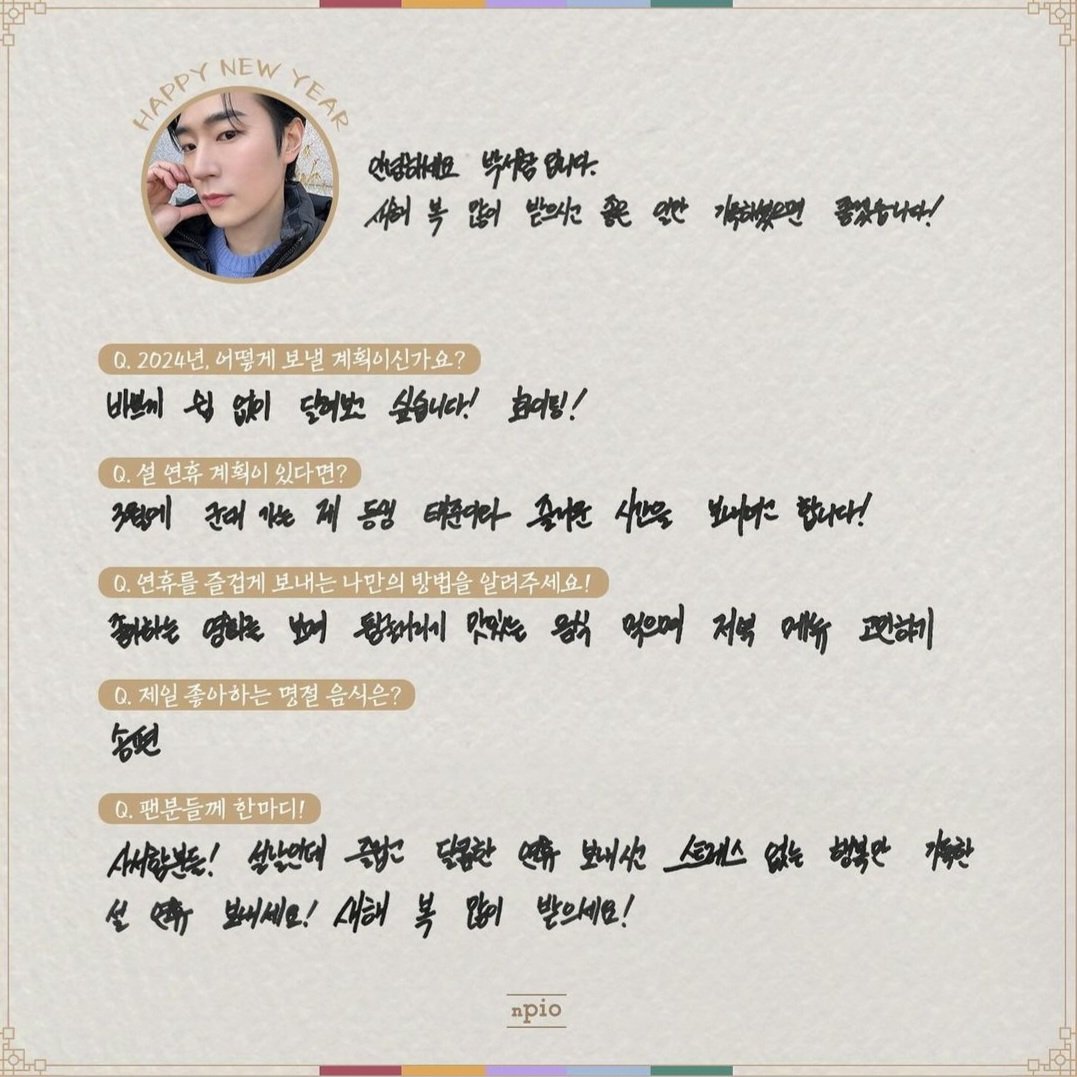 HAPPY NEW YEAR
안녕하세요 박서함 입니다.
새해 복 많이 받으시고 좋은 일만 가득하셨으면 좋겠습니다!
Q. 2024년, 어떻게 보낼 계획이신가요?
바쁘게 쉼 없이 달려보고 싶습니다! 화이팅!
Q. 설 연휴 계획이 있다면?
군대 가는 제 동생 태준이랑 즐거운 시간을 보내려고 합니다!
Q. 연휴를 즐겁게 보내는 나만의 방법을 알려주세요!
좋아하는 영화는 보며 뒹굴거리기 맛있는 음식 먹으며 저녁 메뉴 고민하기
Q. 제일 좋아하는 명절 음식은?
송편
Q. 팬분들께 한마디!
사서함분들! 설날인데 즐겁고 달콤한 연휴 보내시고 스트레스 없는 행복만 가득한
설 연휴 보내세요! 새해 복 많이 받으세요!
npio